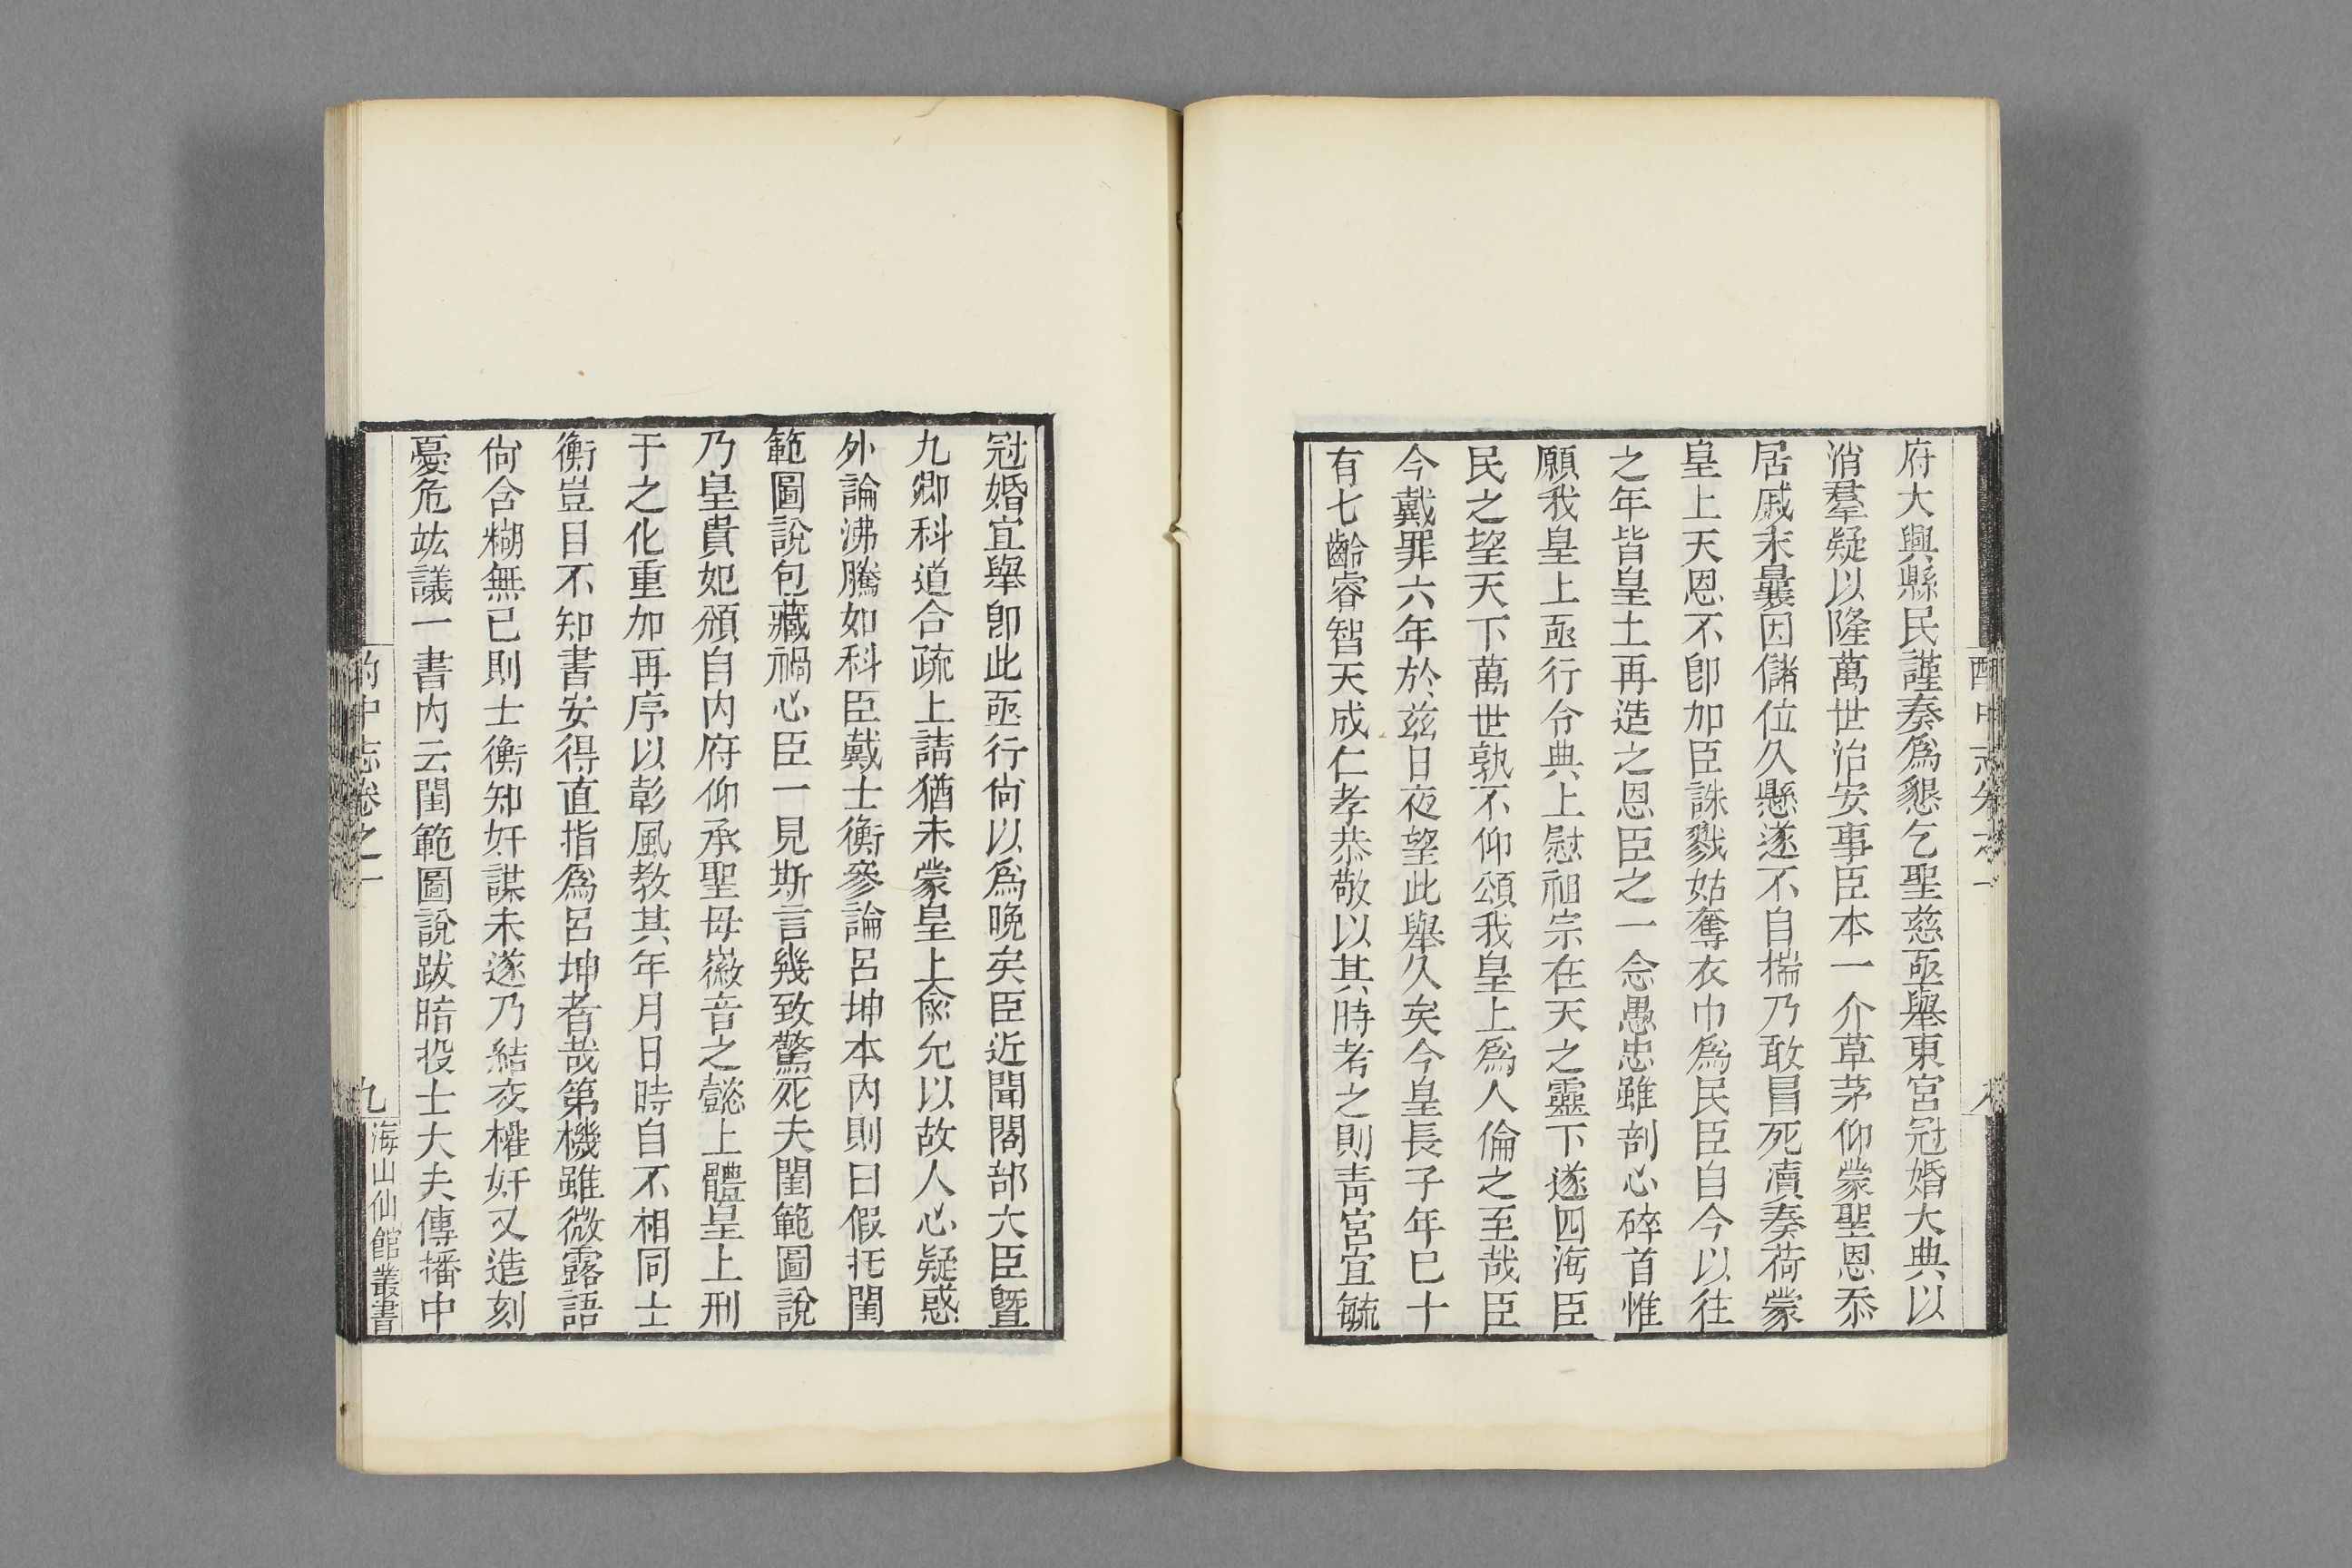 府大興縣民謹奏爲懇乞聖慈亟舉東宮冠婚大典以
消羣疑以隆萬世治安事臣本一介草茅仰蒙聖恩忝
居戚末曩因儲位久懸遂不自揣乃敢昌死瀆奏荷蒙
皇上天恩不卽加臣誅戮姑奪衣巾爲民臣自今以往
之年皆皇土再造之恩臣之一念愚忠雖剖心碎首惟
願我皇上亟行令典上慰祖宗在天之靈下遂四海臣
民之望天下萬世孰不仰頌我皇上爲人倫之至哉臣
今戴罪六年於兹日夜望此舉久矣今皇長子年已十
有七齡睿智天成仁孝恭敬以其時考之則青宮宜毓
冠婚宜舉卽此亟行尙以爲晚矣臣近聞閣部大臣曁
九卿科道合疏上請猶未蒙皇上俞允以故人心疑惑
外論沸騰如科臣戴士衡參論呂坤本內則曰假托閨
範圖說包藏禍心臣一見斯言幾致驚死夫閨範圖說
乃皇貴妃頒自內府仰承聖母徽音之懿上體皇上刑
于之化重加再序以彰風教其年月日時自不相同士
衡豈目不知書安得直指爲呂坤者哉第機雖微露語
尙含糊無已則士衡知奸謀未遂乃結交權奸又造刻
憂危竑議一書內云閨範圖說跋暗投士大夫傳播中
酌中志卷之一
九
海山仙館叢書